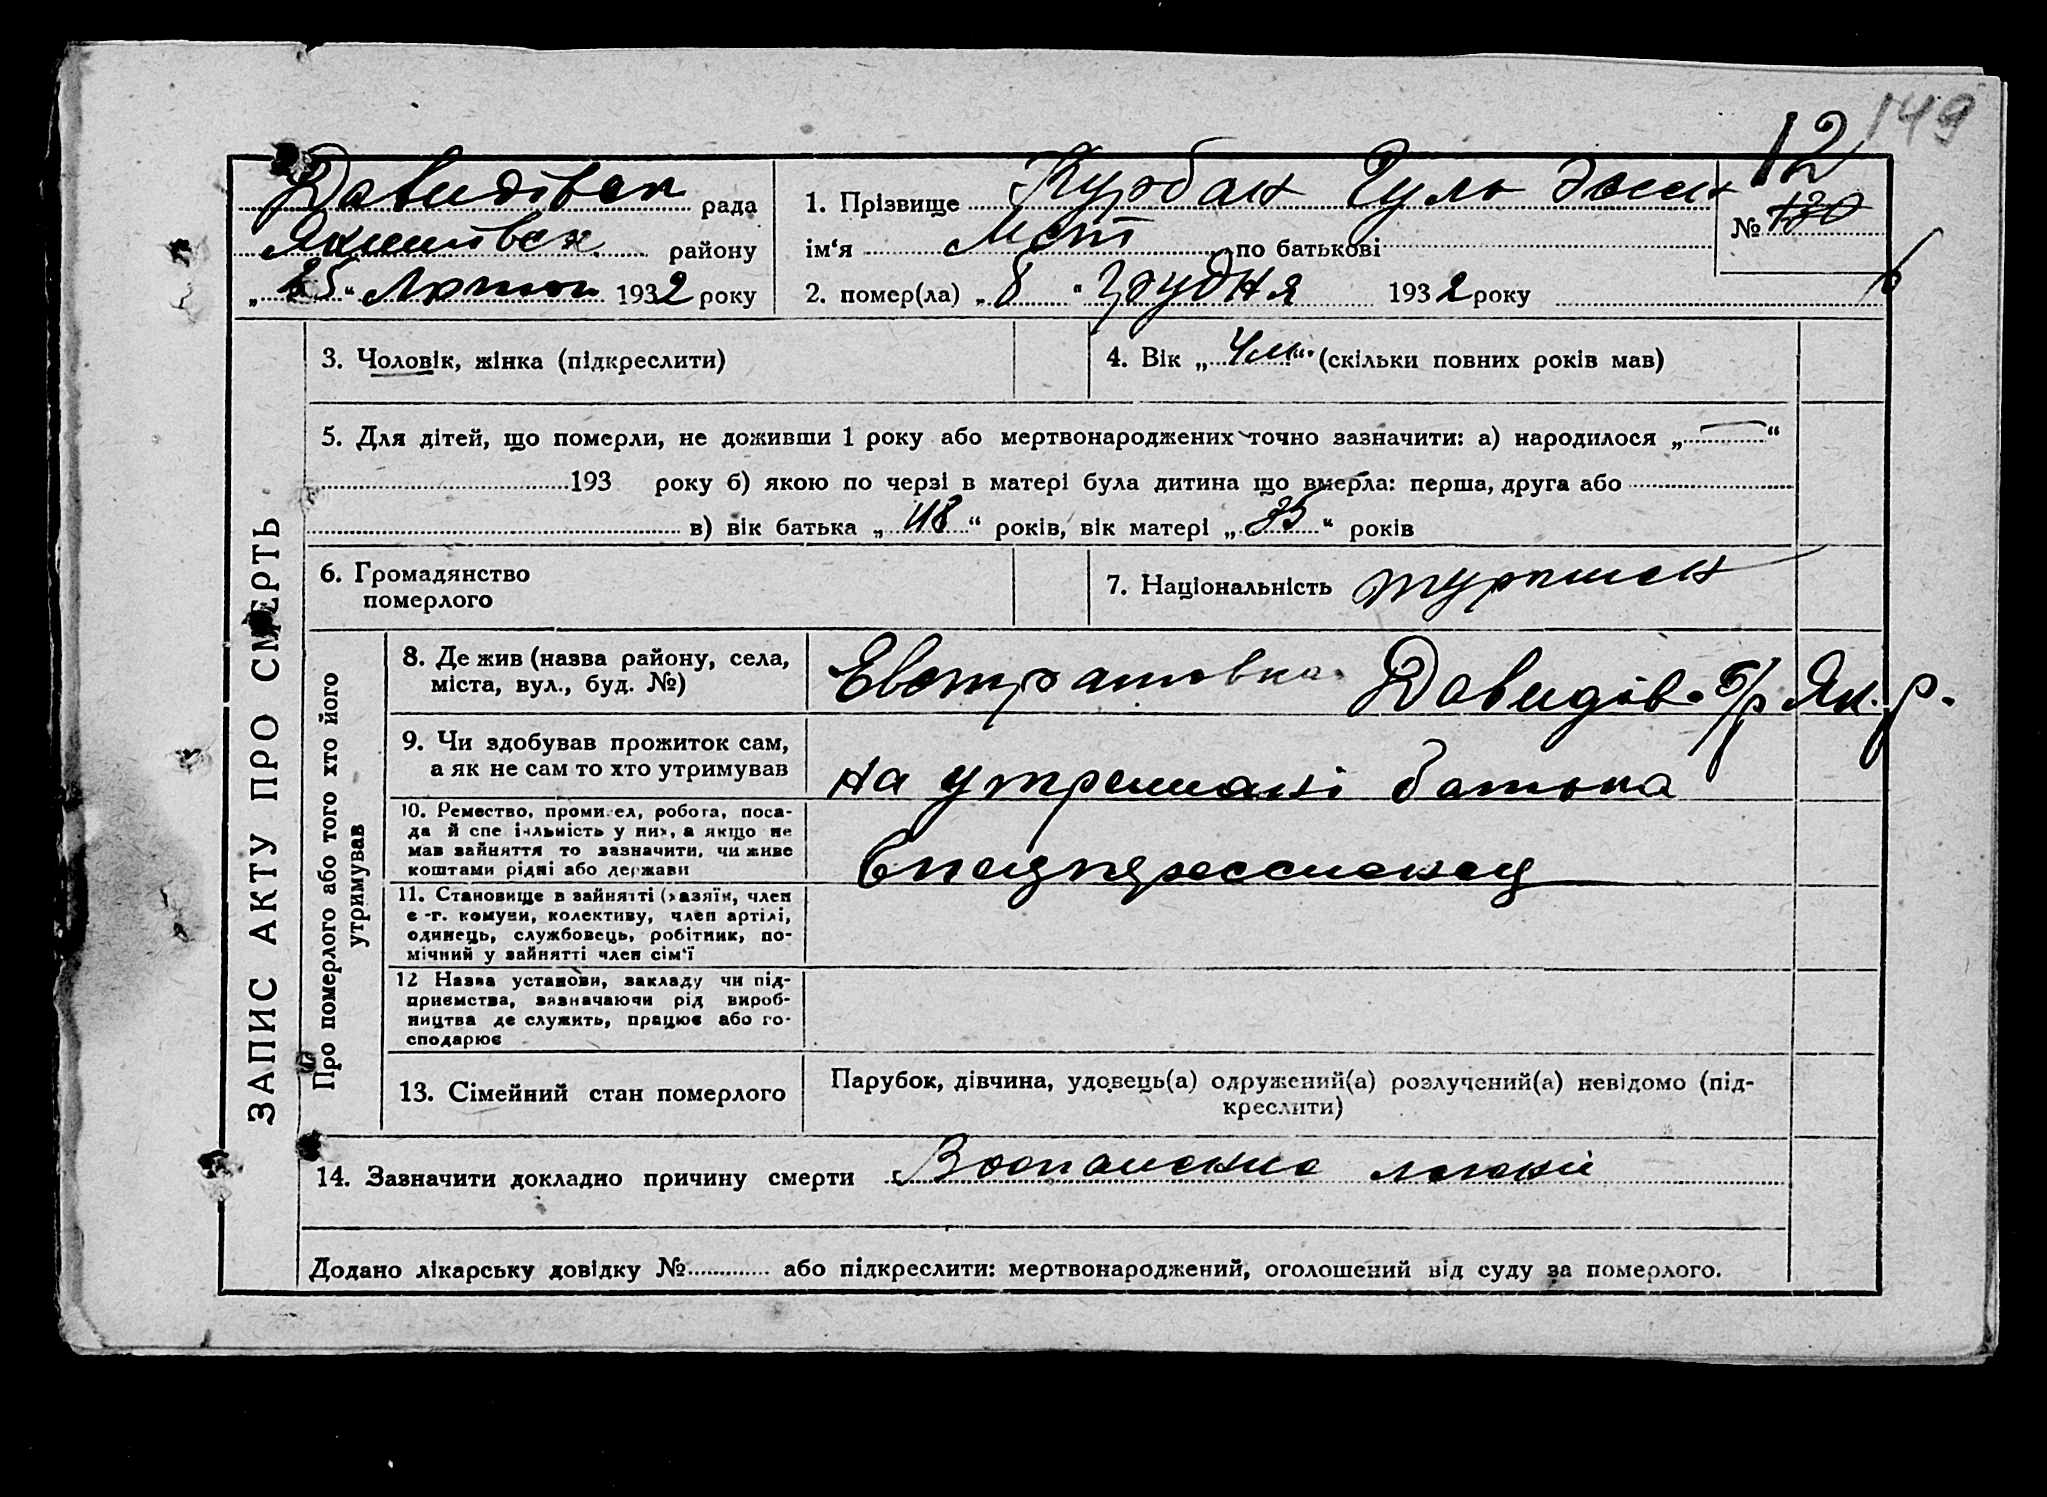 149
12
Давидівськ рада
Якимівськ району
„25“ Лютого 1932 року
1. Прізвище Курбан Гуль
ім‘я по батькові
№ 130
2. помер(ла) „8“ грудня 1932 року
ЗАПИС АКТУ ПРО СМЕРТЬ
3. Чоловік, жінка (підкреслити)
4. Вік „4 м.“ (скільки повних років мав)
5. Для дітей, що померли, не доживши 1 року або мертвонароджених точно зазначити: а) народилося „—“
193 року б) якою по черзі в матері була дитина що вмерла: перша, друга або
в) вік батька „48“ років, вік матері „35“ років
6. Громадянство
померлого
7. Національність
Про померлого або того хто його
утримував
8. Де жив (назва району, села,
міста, вул., буд. №)
Евстратовка Давидів. с/р Як. р.
9. Чи здобував прожиток сам,
а як не сам то хто утримував
на утриманні батька
10. Ремество, промисел, робота, поса-
да й спеціяльність у них, а якщо не
мав зайняття то зазначити, чи живе
коштами рідні або держави
Спецпереселенец
11. Становище в зайнятті (хазяїн, член
с.-г. комуни, колективу, член артілі,
одинець, службовець, робітник, по-
мічний у зайнятті член сім‘ї
12 Назва установи, закладу чи під-
приємства, зазначаючи рід вироб-
ництва де служить, працює або го-
сподарює
13. Сімейний стан померлого
Парубок, дівчина, удовець(а) одружений(а) розлучений(а) невідомо (під-
креслити)
14. Зазначити докладно причину смерти Воспаление легких
Додано лікарську довідку № або підкреслити: мертвонароджений, оголошений від суду за померлого.